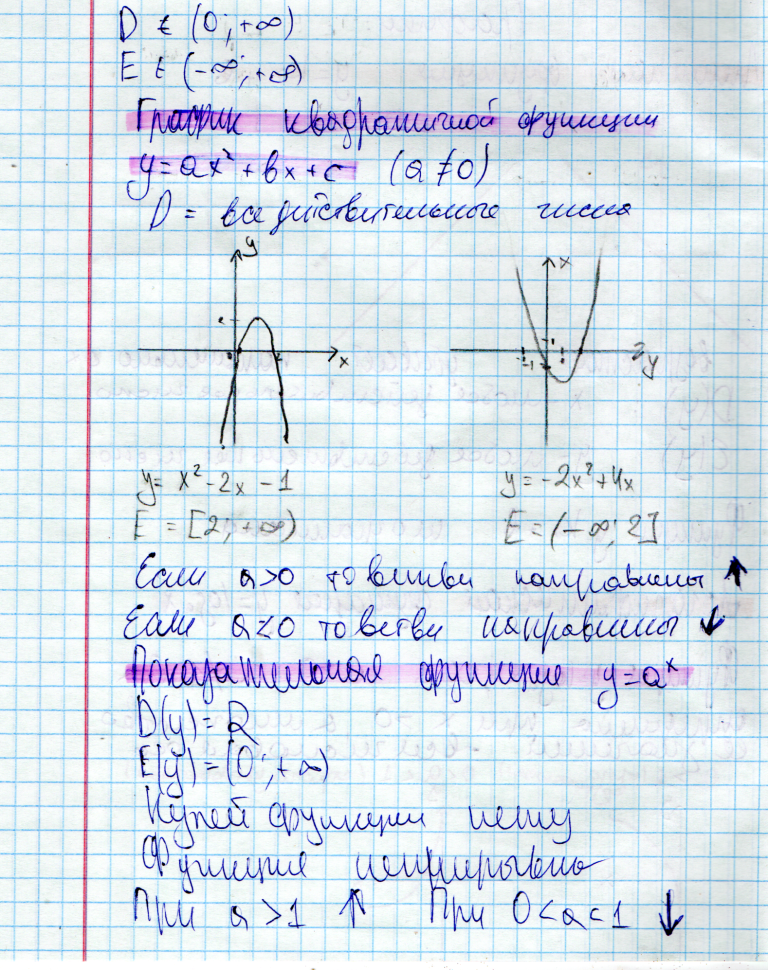 D ∈ (0; +∞)
E ∈ (-∞; +∞)
График квадратичной функции
y = ax² + bx + c (a ≠ 0)
D = все действительные числа
y x
2
0 2 x y
-1 1
-1
y = x² - 2x - 1 y = -2x² + 4x
E = [2; +∞) E = (-∞; 2]
Если a>0 то ветви направлены ↑
Если a<0 то ветви направлены ↓
Показательная функция y = aˣ
D(y) = R
E(y) = (0; +∞)
Нулей функции нету
Функция непрерывна
При a > 1 ↑ При 0 < a < 1 ↓